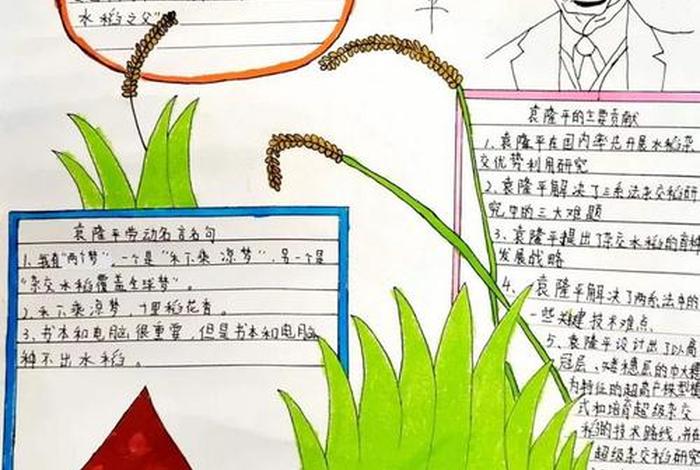 水稻之父"
袁隆平劳动名言名句
1.我有"两个梦",一个是"禾下乘凉梦",另一个是
"杂交水稻覆盖全球梦"。
2.禾下乘凉梦,十里稻花香。
3.书本和电脑很重要,但是书本和电脑
种不出水稻。
袁隆平的主要贡献
1.袁隆平在国内率先开展水稻杂
交优势利用研究
2.袁隆平解决了三系法杂交稻研
究中的三大难题
3、袁隆平提出了杂交水稻的育种
发展战略
4、袁隆平解决了两系法中的
一些关键技术难点
5、袁隆平设计出了以高
冠层、矮穗层的中大穗
为特征的超高产株型模
式和培育超级杂交
稻的技术路线,并在
超级杂交稻研究